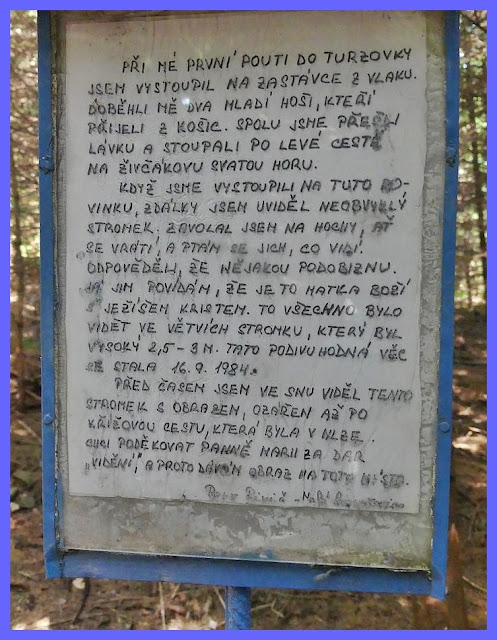 PŘI MÉ PRVNÍ POUTI DO TURZOVKY
JSEM VYSTOUPIL NA ZASTÁVCE Z VLAKU.
DOBĚHLI MĚ DVA MLADÍ HOŠI, KTEŘÍ
PŘIJELI Z KOŠIC. SPOLU JSME PŘEŠLI
LÁVKU A STOUPALI PO LEVÉ CESTĚ
NA ŽIVČÁKOVU SVATOU HORU.
KDYŽ JSME VYSTOUPILI NA TUTO RO-
VINKU, ZDÁLKY JSEM UVIDĚL NEOBVYKLÝ
STROMEK. ZAVOLAL JSEM NA HOCHY, AŤ
SE VRÁTÍ, A PTÁM SE JICH, CO VIDÍ.
ODPOVĚDĚLI, ŽE NĚJAKOU PODOBIZNU.
JÁ JIM POVÍDÁM, ŽE JE TO MATKA BOŽÍ
S JEŽÍŠEM KRISTEM. TO VŠECHNO BYLO
VIDĚT VE VĚTVÍCH STROMKU, KTERÝ BYL
VYSOKÝ 2,5 - 3 M. TATO PODIVUHODNÁ VĚC
SE STALA 16. 9. 1984.
PŘED ČASEM JSEM VE SNU VIDĚL TENTO
STROMEK S OBRAZEM, OZÁŘEN AŽ PO
KŘÍŽOVOU CESTU, KTERÁ BYLA V MLZE.
CHCI PODĚKOVAT PANNĚ MARII ZA DAR
„VIDĚNÍ", A PROTO DÁVÁM OBRAZ NA TOTO MÍSTO.